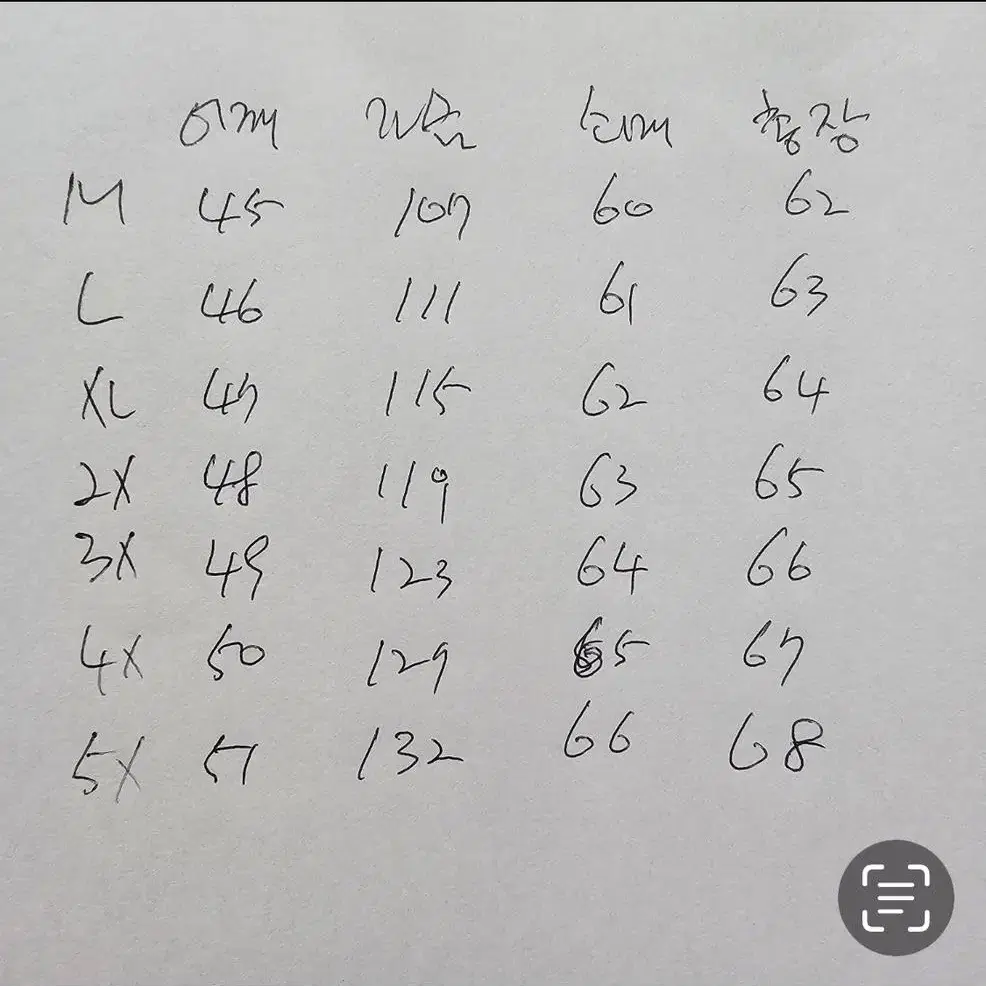 어깨 가슴 소매 총장
M 45 107 60 62
L 46 111 61 63
XL 47 115 62 64
2X 48 119 63 65
3X 49 123 64 66
4X 50 129 65 67
5X 51 132 66 68